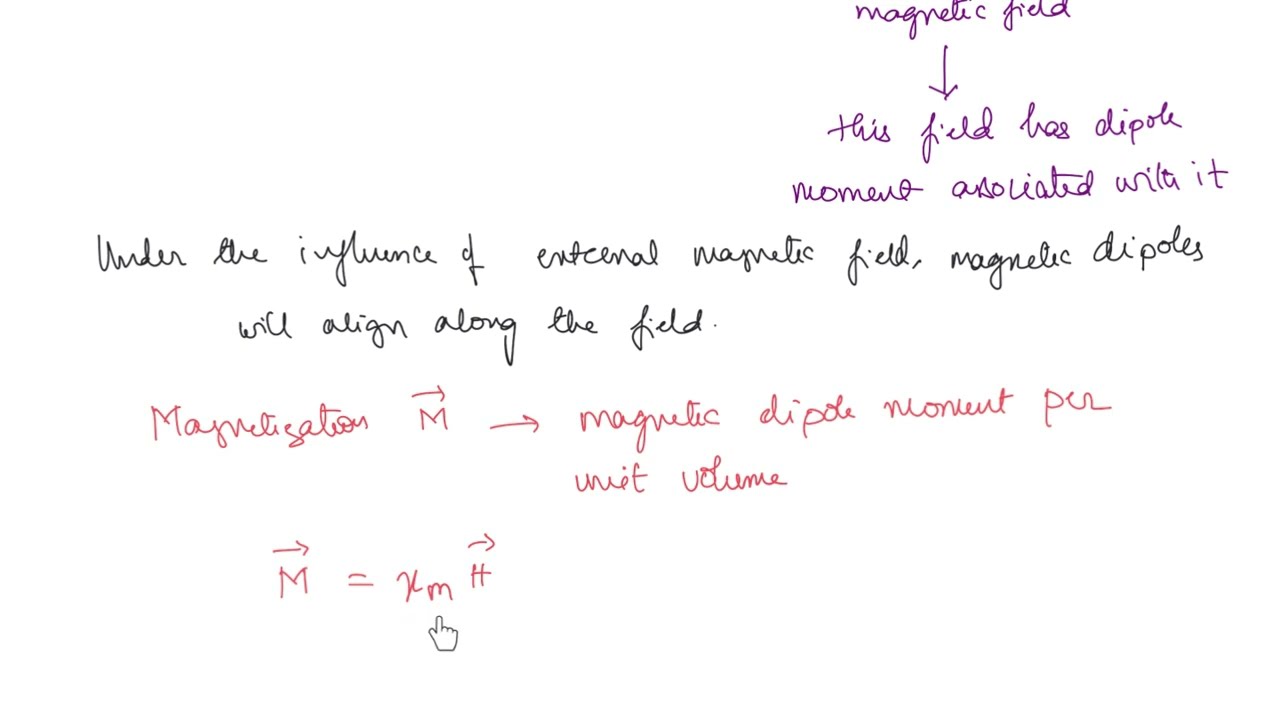 magnetic field
↓
this field has dipole
moment associated with it
Under the influence of external magnetic field, magnetic dipoles
will align along the field.
Magnetization M⃗ → magnetic dipole moment per
unit volume
M⃗ = χm H⃗